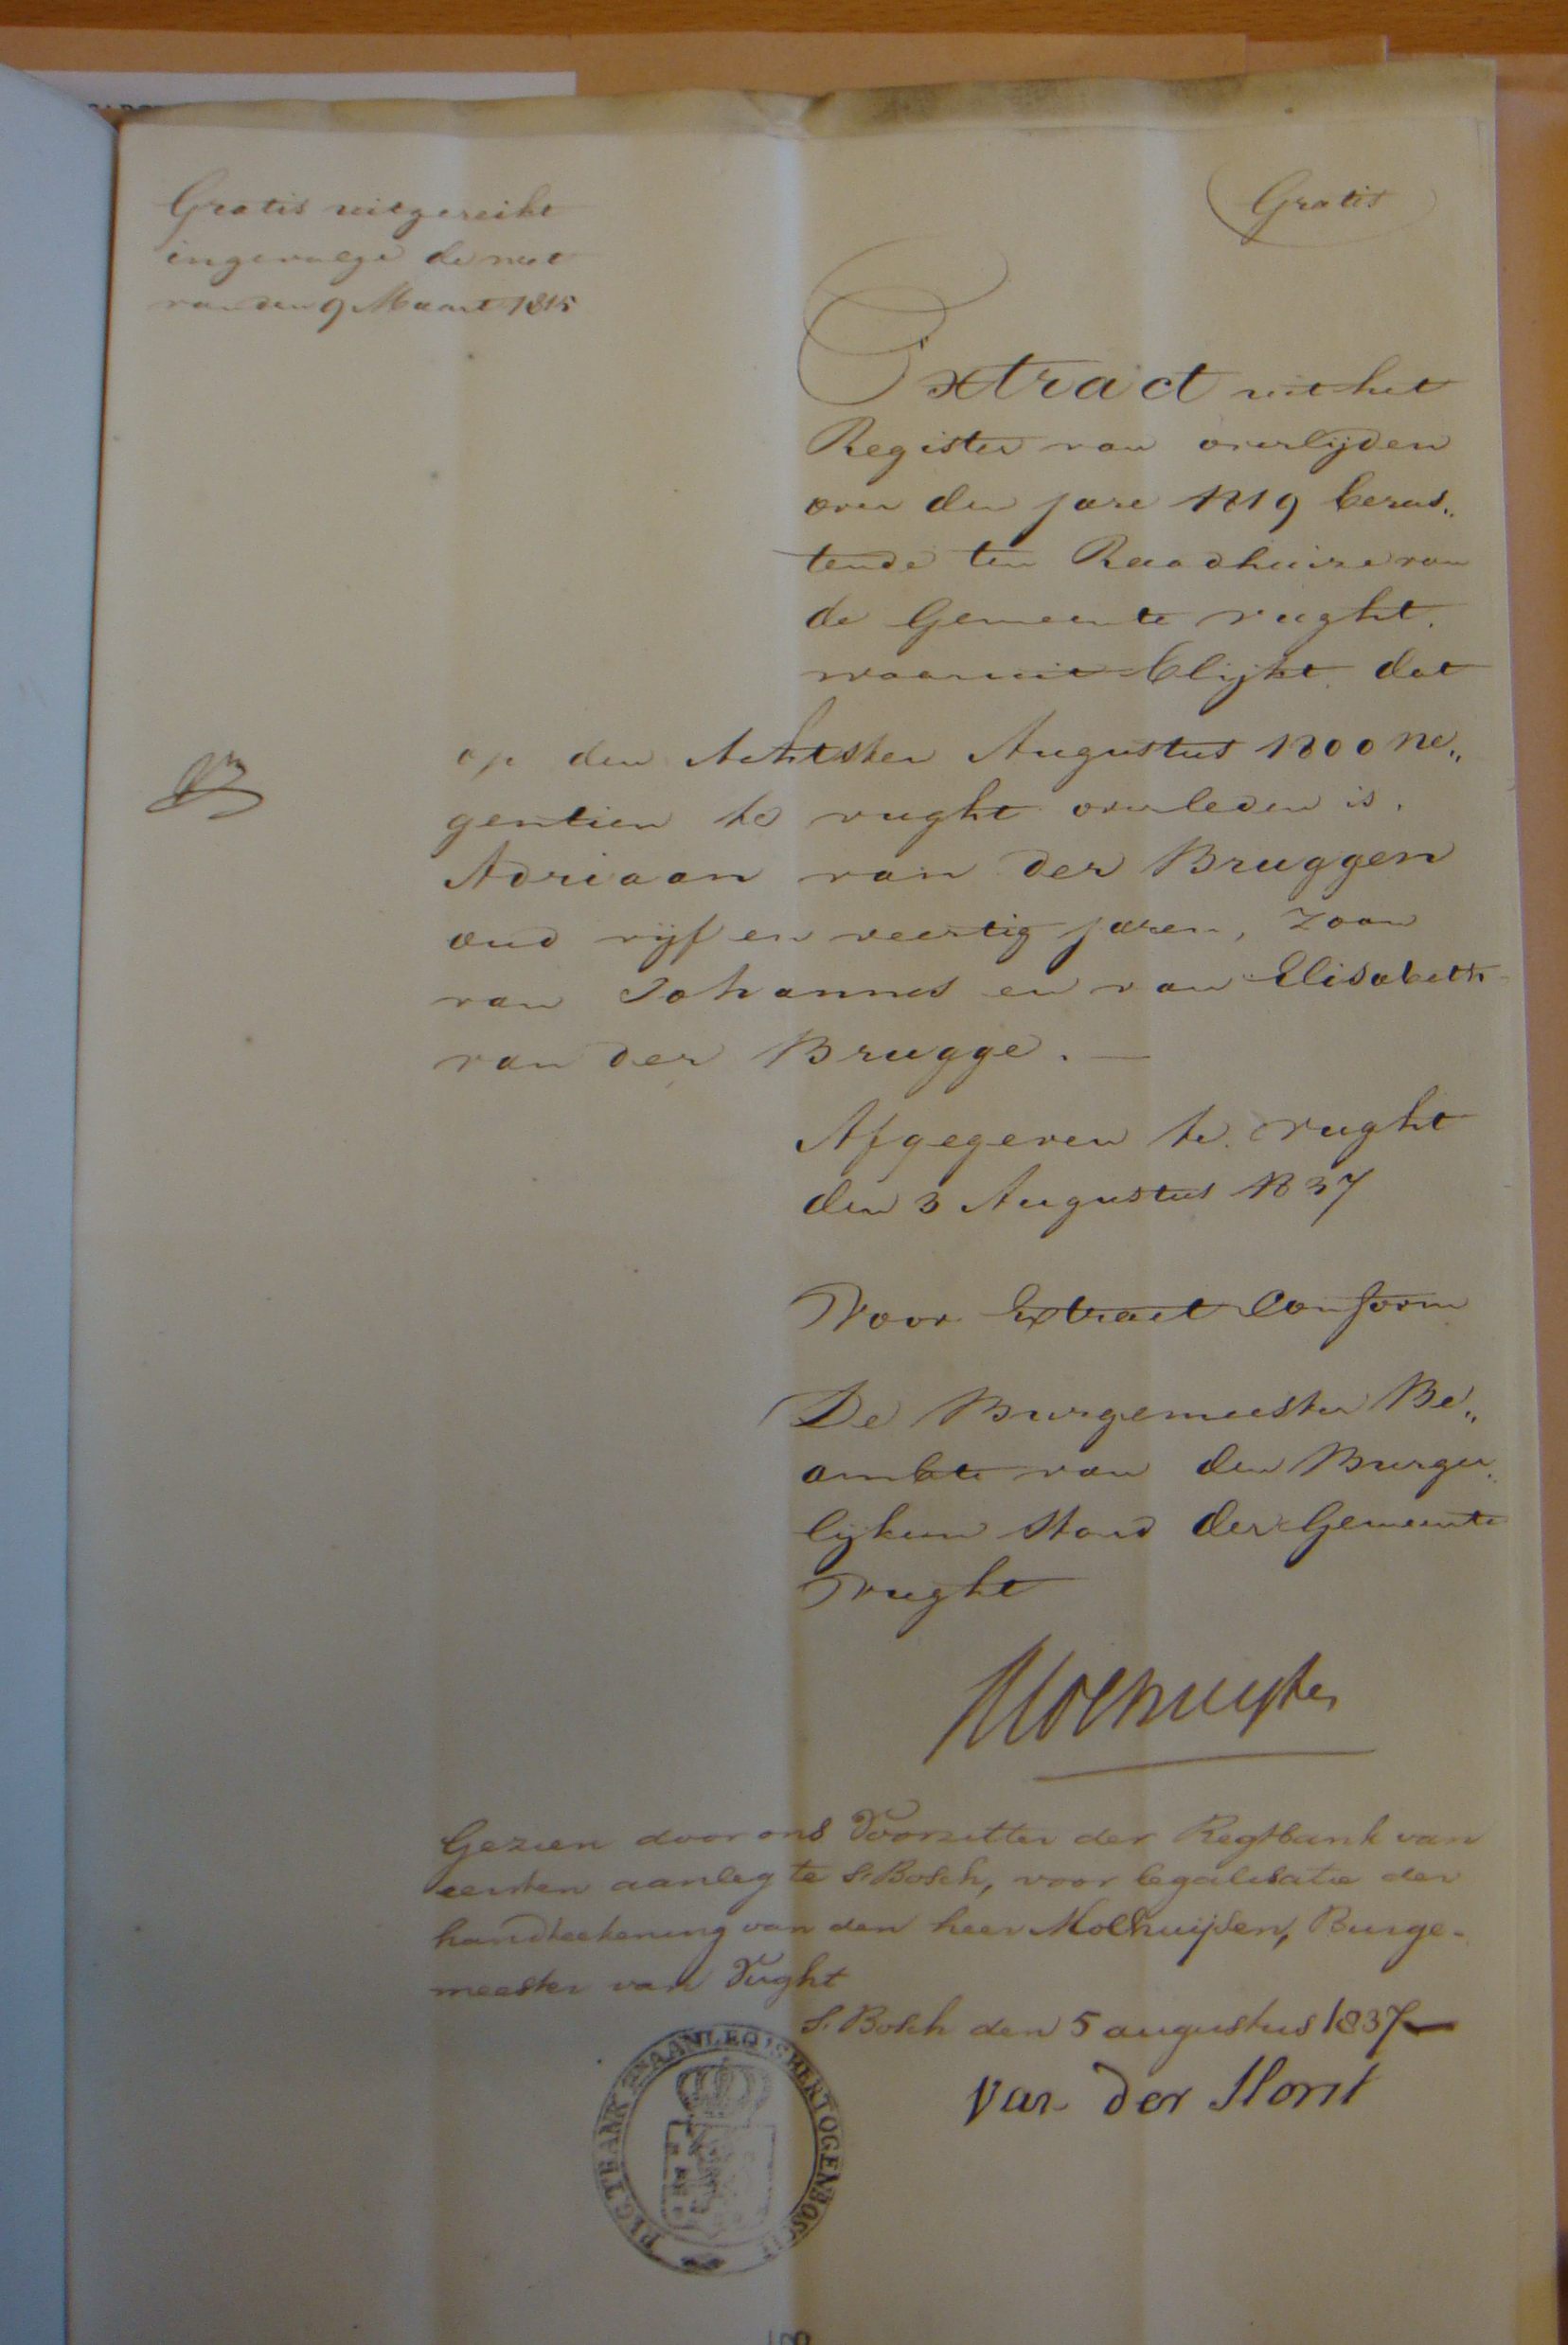 Gratis
Gratis uitgereikt
ingevolge de wet
van den 9 Maart 1815
Extract uit het
Register van overlijden
over den jare 1819 berus„
tende ten Raadhuize van
de Gemeente vught.
waaruit blijkt dat
op den Achtsten Augustus 1800 ne„
gentien te vught overleden is.
Adriaan van der Bruggen
oud vijf en veertig jaren, zoon
van Johannes en van Elisabeth
van der Brugge. —
Afgegeven te vught
den 3 Augustus 1837
Voor Extract Conform
De Burgemeester Be„
ambte van den Burger„
lijken Stand der Gemeente
vught
Molhuijsen
Gezien door ons Voorzitter der Regtbank van
eersten aanleg te S.Bosch, voor legalisatie der
handteekening van den heer Molhuijsen, Burge-
meester van Vught
S. Bosch den 5 augustus 1837
van der Horst
REGTBANK EN AANLEG 'S HERTOGENBOSCH